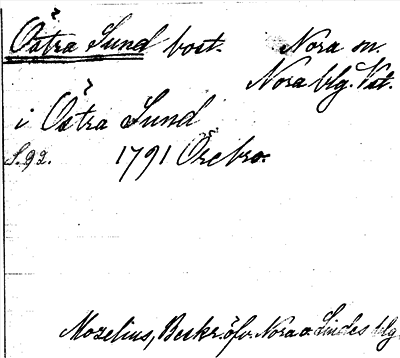 Östra Sund bost. Nora sn.
Nora blg. Vst.
i Östra Sund
S. 92. 1791 Örebro.
Mozelius, Beskr. öfv. Nora o. Lindes blg.